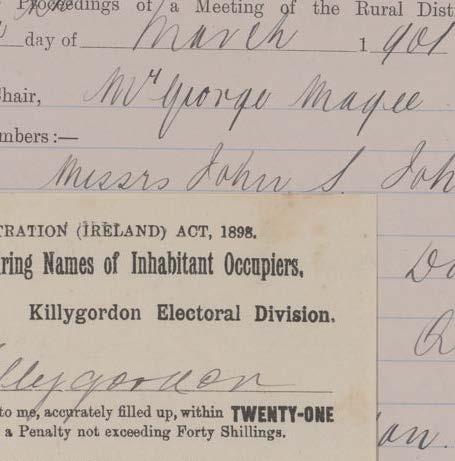 Proceedings of a Meeting of the Rural Dist
day of March 1901
Chair, Mr George Magee
mbers:—
Messrs John S. Joh
TRATION (IRELAND) ACT, 1898.
ring Names of Inhabitant Occupiers,
Killygordon Electoral Division.
illygordon
to me, accurately filled up, within TWENTY-ONE
a Penalty not exceeding Forty Shillings.
on.